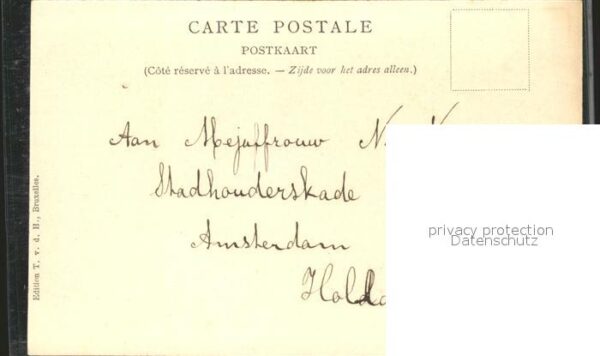 CARTE POSTALE
POSTKAART
(Côté réservé à l'adresse. — Zijde voor het adres alleen.)
Aan Mejuffrouw N.
Stadhouderskade
Amsterdam
Edition T. v. d. H., Bruxelles.
privacy protection
Datenschutz